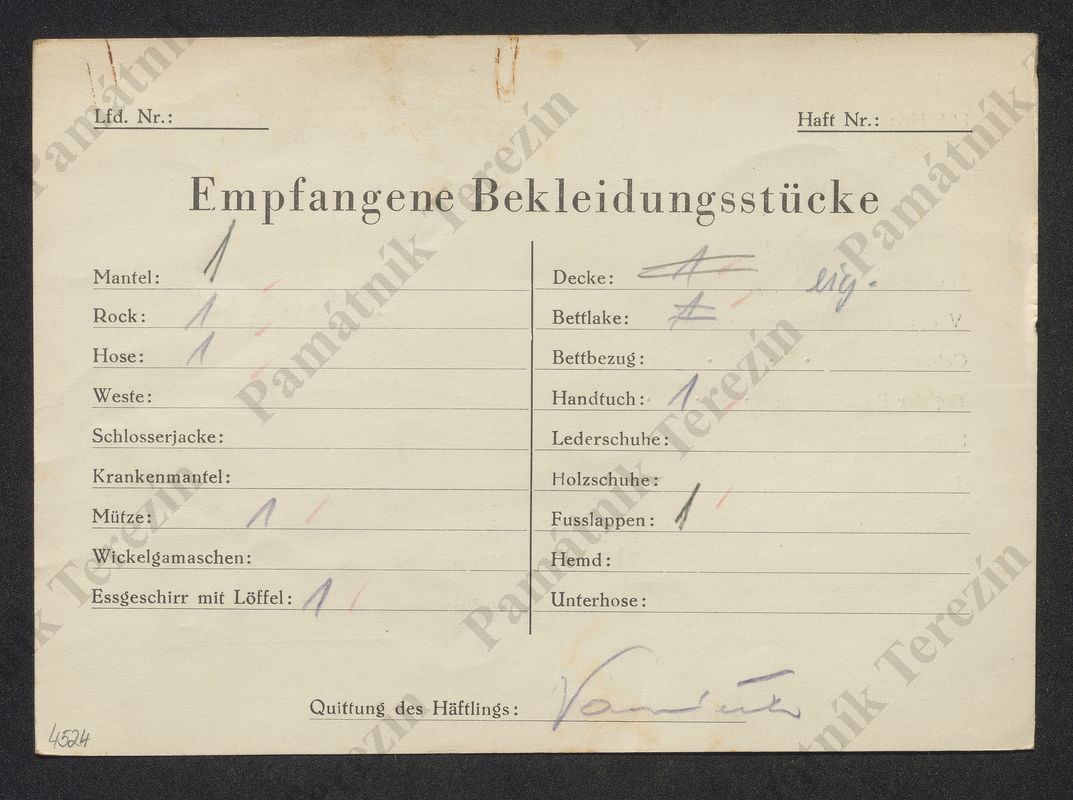 Lfd. Nr.:
Haft Nr.:
Empfangene Bekleidungsstücke
Mantel: 1
Rock: 1
Hose: 1
Weste:
Schlosserjacke:
Krankenmantel:
Mütze: 1
Wickelgamaschen:
Essgeschirr mit Löffel: 1
Decke: 1 eig.
Bettlake: 1
Bettbezug:
Handtuch: 1
Lederschuhe:
Holzschuhe:
Fusslappen: 1
Hemd:
Unterhose:
Quittung des Häftlings:
4524
Památník Terezín